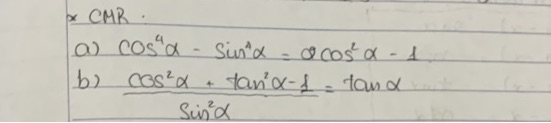 * CMR.
a) cos⁴α - sin⁴α = 2cos²α - 1
b) cos²α + tan²α - 1 = tanα
sin²α